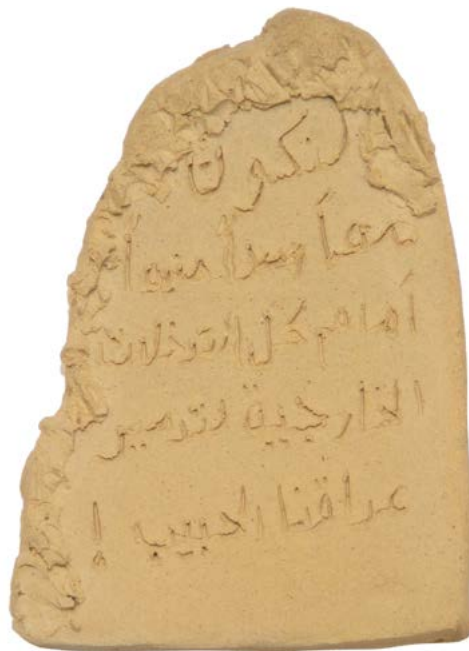 لنكون
معاً سداً منيعاً
أمام كل التدخلات
الخارجية لتدمير
عراقنا الحبيب !